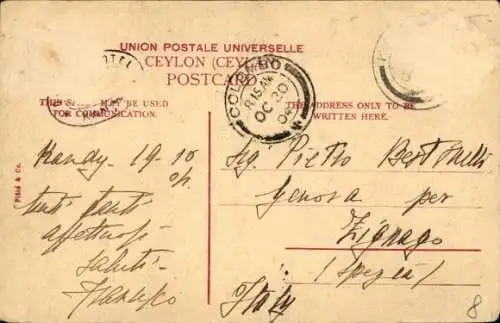 UNION POSTALE UNIVERSELLE
CEYLON (CEYLAN)
POSTCARD
THIS SPACE MAY BE USED
FOR COMMUNICATION.
THE ADDRESS ONLY TO BE
WRITTEN HERE.
COLOMBO
OC 20
04
Plâté & Co.
Kandy 19-10
04
tanti tanti
affettuosi
saluti
Francesco
Sig. Pietro
Genova per
Zignago
(Spezia)
Italy
8